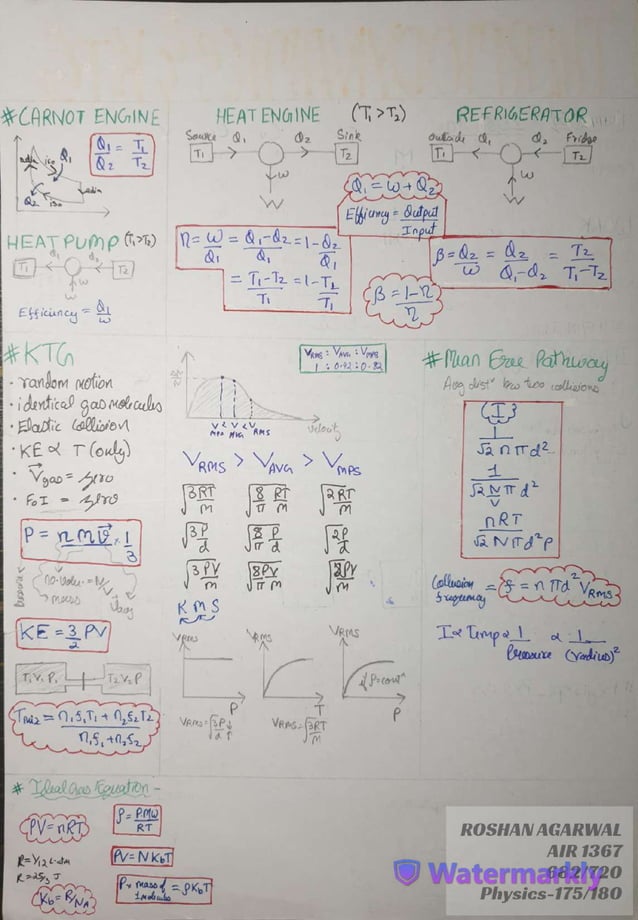 #CARNOT ENGINE
Q₁/Q₂ = T₁/T₂
adia iso Q₁
adia
Q₂ iso
HEAT ENGINE (T₁>T₂)
Source Q₁ Q₂ Sink
T₁ T₂
W
REFRIGERATOR
outside Q₁ Q₂ Fridge
T₁ T₂
W
Q₁ = W + Q₂
Efficiency = Output/Input
η = W/Q₁ = Q₁-Q₂/Q₁ = 1-Q₂/Q₁
= T₁-T₂/T₁ = 1-T₂/T₁
β = Q₂/W = Q₂/Q₁-Q₂ = T₂/T₁-T₂
β = 1-η/η
HEAT PUMP (T₁>T₂)
T₁ Q₁ Q₂ T₂
W
Efficiency = Q₁/W
#KTG
· random motion
· identical gas molecules
· Elastic collision
· KE ∝ T (only)
· V⃗gas = zero
· FoI = zero
P = n m v̄ × 1/3
mass
Vavg
KE = 3/2 PV
T₁ V₁ P₁ T₂ V₂ P
Tmix = n₁f₁T₁ + n₂f₂T₂ / n₁f₁ + n₂f₂
VRMS : VAVG : VMPS
1 : 0.92 : 0.82
V < V < V
MPS AVG RMS
velocity
VRMS > VAVG > VMPS
√3RT/m √8/π RT/m √2RT/m
√3P/d √8/π P/d √2P/d
√3PV/m √8PV/π m √2PV/m
R M S
VRMS VRMS VRMS
if P=constⁿ
P T P
VRMS=√3P/d VRMS=√3RT/m
#Mean Free Pathway
Avg distⁿ b/w two collisions
{I}
1/√2 n π d²
1/√2 N/V π d²
nRT/√2 N π d² P
Collision frequency = f = n π d² VRMS
I ∝ Temp ∝ 1/Pressure ∝ 1/(radius)²
# Ideal Gas Equation -
PV = nRT
ρ = PMw/RT
R = 1/12 L-atm
R = 25/3 J
PV = N KbT
Kb = R/NA
P × mass of 1 molecule = ρKbT
ROSHAN AGARWAL
AIR 1367
682/720
Watermarkly
Physics-175/180